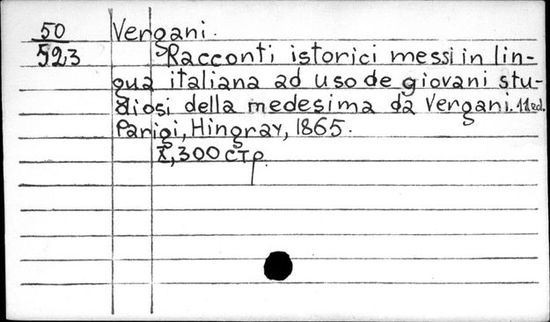 50 Vergani.
523 Racconti istorici messi in lin-
gua italiana ad uso de giovani stu-
diosi della medesima da Vergani. 11 ed.
Parigi, Hingray, 1865.
X, 300 стр.